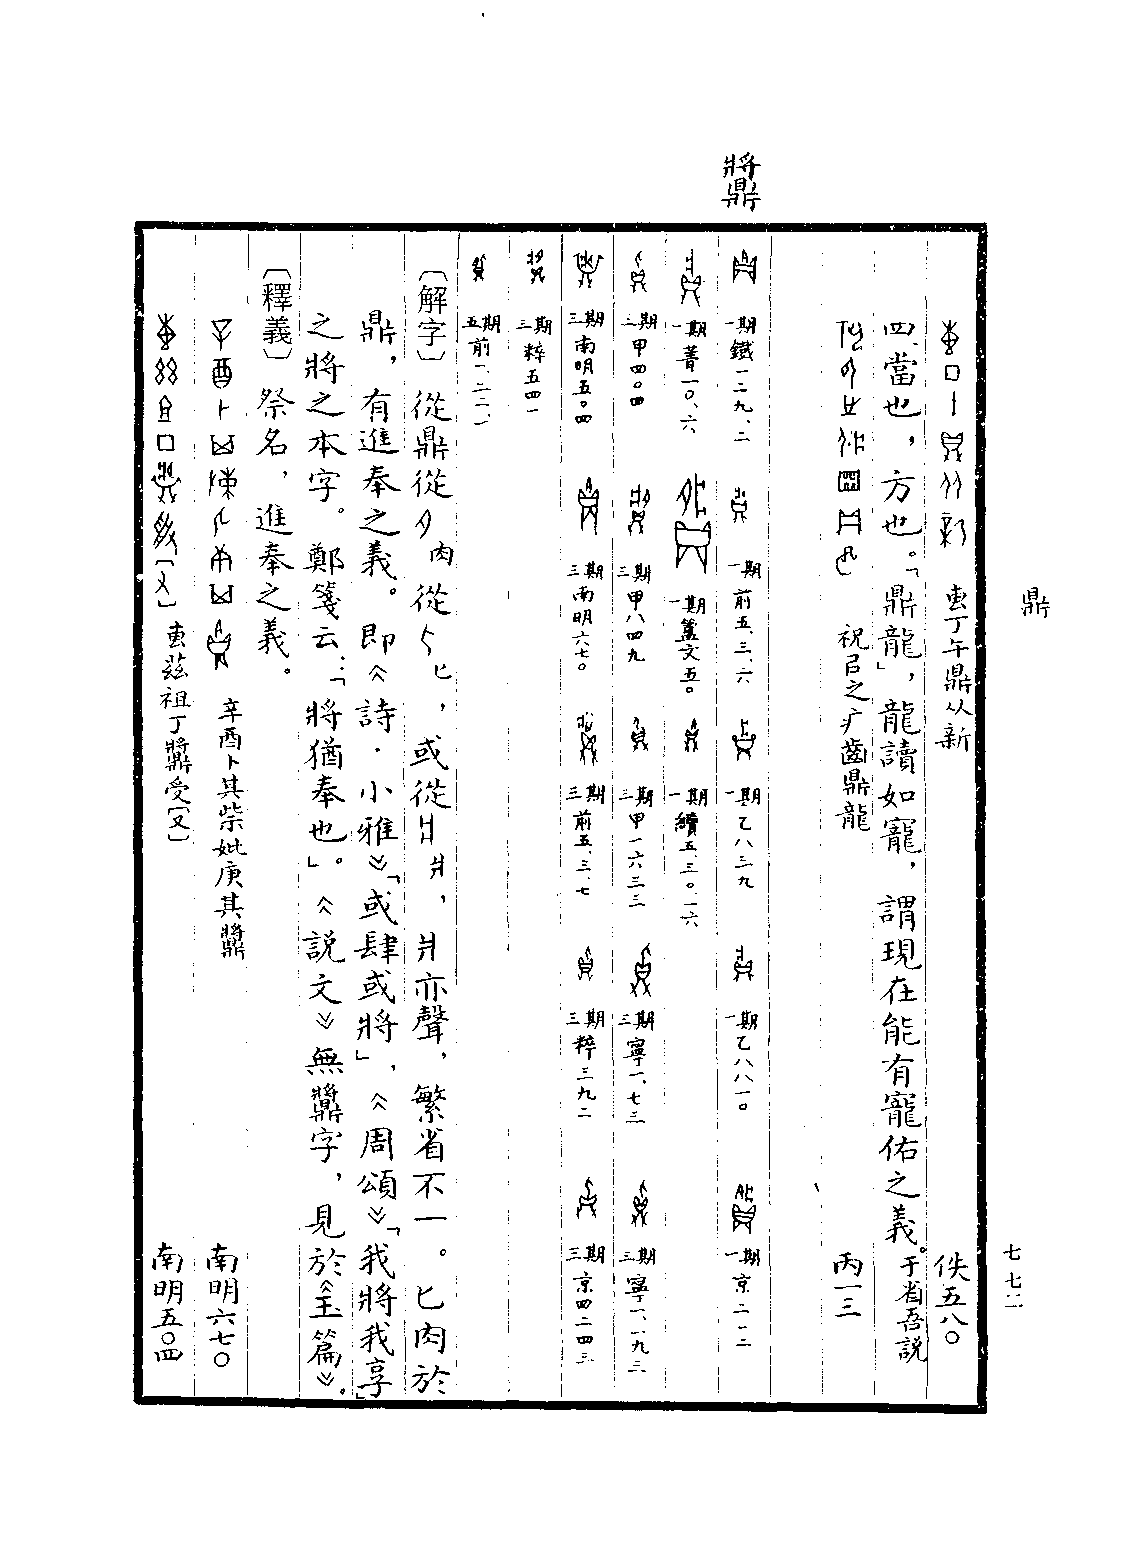 鼎
七七二
叀丁午鼎从新 佚五八〇
四、當也，方也。「鼎龍」，龍讀如寵，謂現在能有寵佑之義。于省吾説
祝㠯之疒齒鼎龍 丙一三
將鼎
一期鐵一二九、二 一期前五、三、六 一期乙八三九 一期乙八八一〇 一期京二一二
一期菁一〇、六 一期簠文五〇 一期續五、三〇、一六
三期甲四〇四 三期甲八四九 三期甲一六三三 三期寧一、七三 三期寧一、一九三
三期南明五〇四 三期南明六七〇 三期前五、三、七 三期粹三九二 三期京四二四三
三期粹五四一
五期前一、二二、一
〔解字〕從鼎從肉從匕，或從爿，爿亦聲，繁省不一。匕肉於
鼎，有進奉之義。即《詩·小雅》「或肆或將」、《周頌》「我將我享」
之將之本字。鄭箋云：「將猶奉也」。《説文》無𩱧字，見於《玉篇》。
〔釋義〕祭名，進奉之義。
辛酉卜其柴妣庚其𩱧 南明六七〇
叀茲祖丁𩱧受〔又〕 南明五〇四